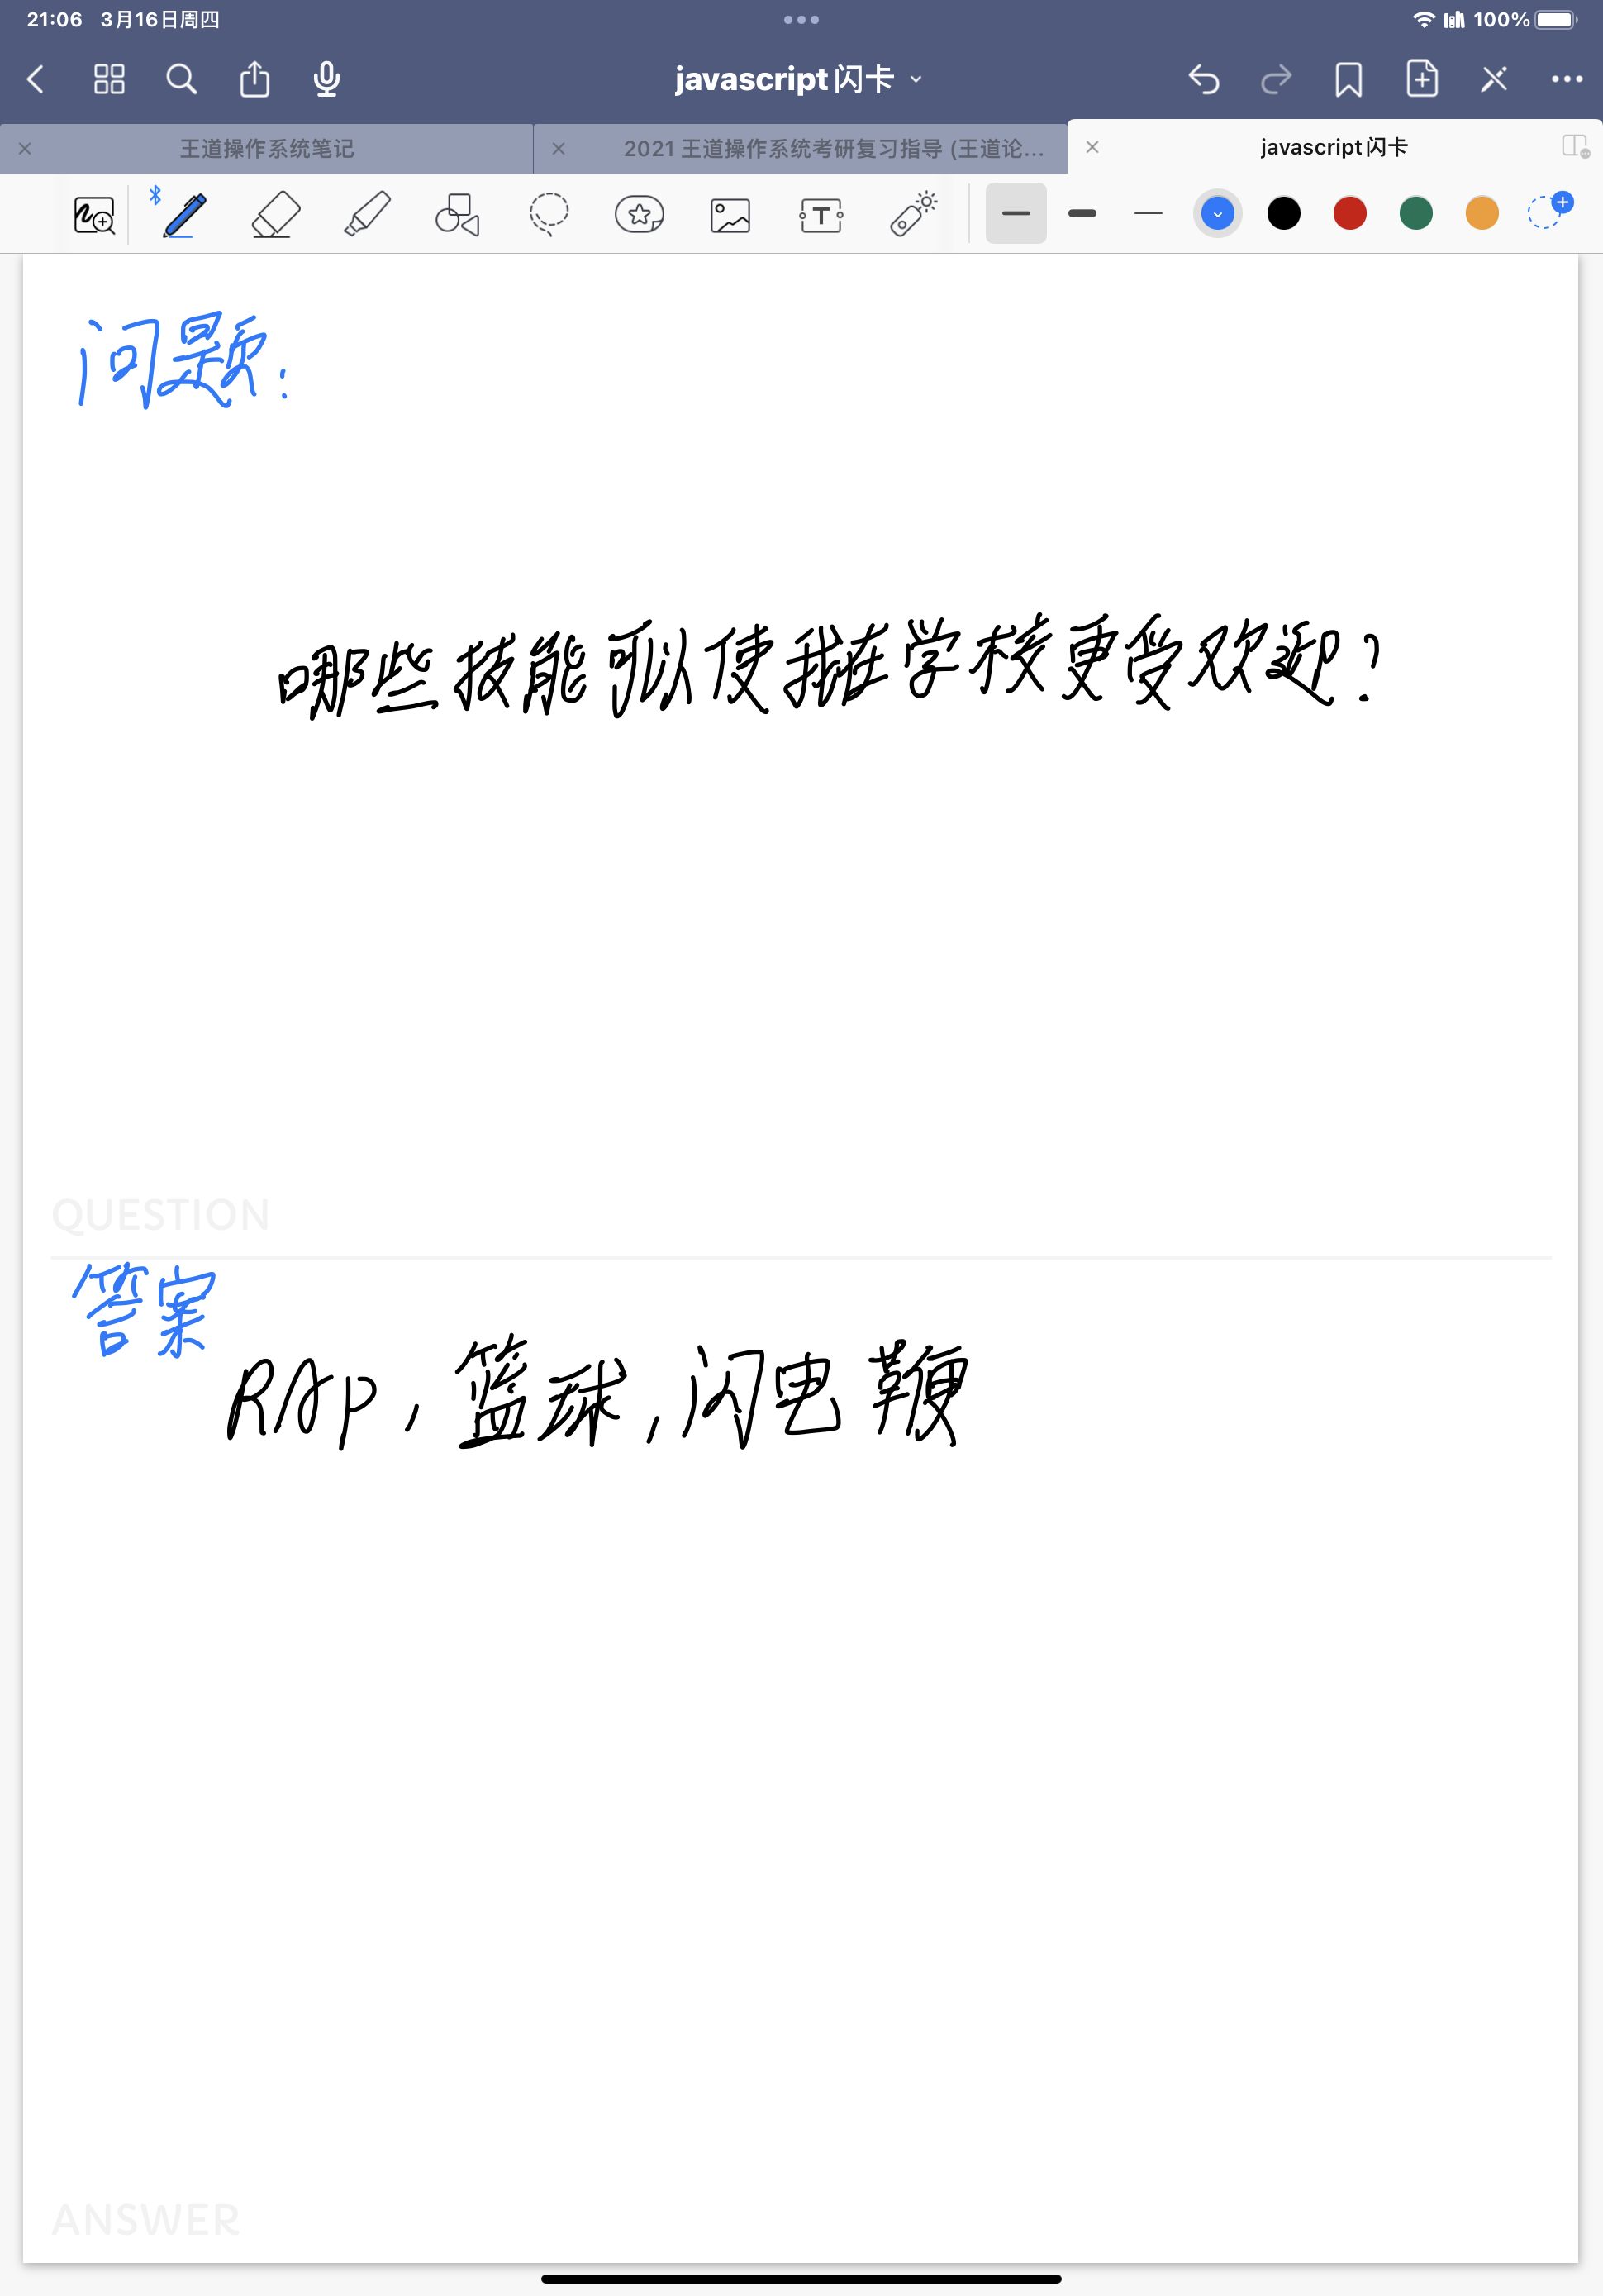 21:06 3月16日周四 100%
javascript闪卡
王道操作系统笔记 2021 王道操作系统考研复习指导 (王道论... javascript闪卡
T
问题:
哪些技能可以使我在学校更受欢迎?
QUESTION
答案
RAp,篮球,闪电鞭
ANSWER